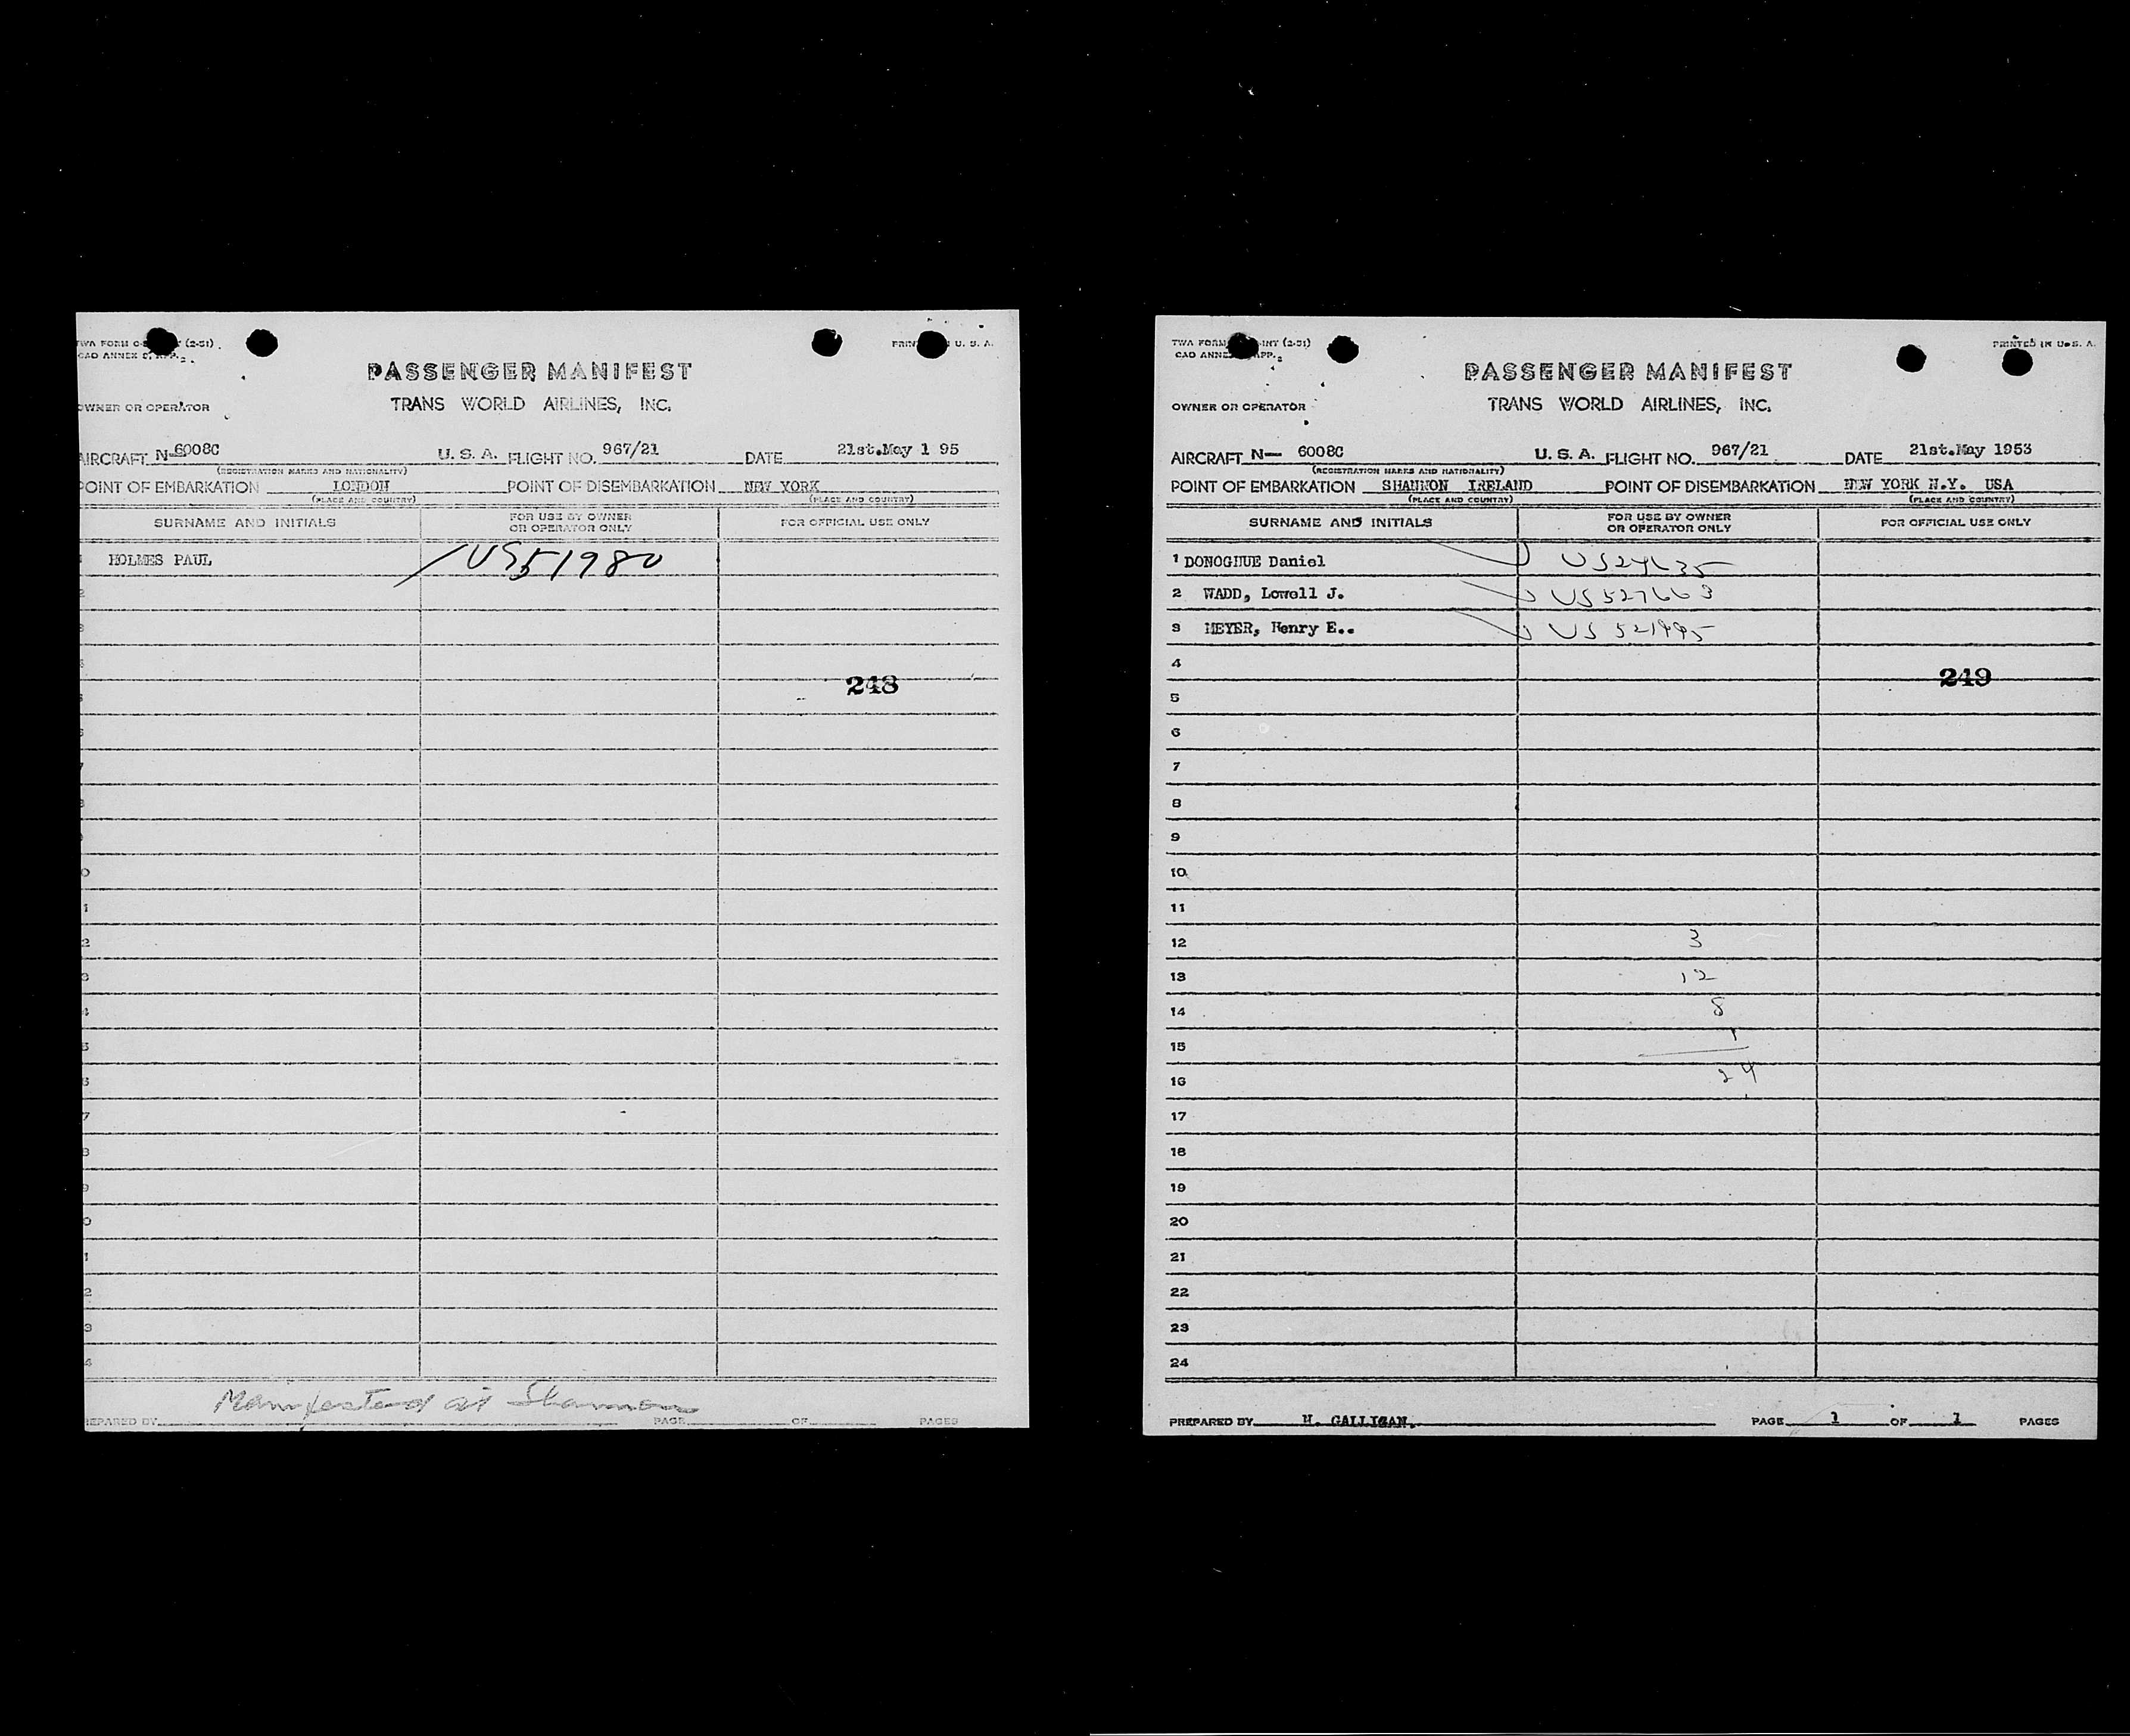 TWA FORM (2-51)
CAO ANNEX
PRIN U. S. A.
PASSENGER MANIFEST
OWNER OR OPERATOR
TRANS WORLD AIRLINES, INC.
AIRCRAFT N-6008C U. S. A. FLIGHT NO. 967/21 DATE 21st.May 1 95
(REGISTRATION MARKS AND NATIONALITY)
POINT OF EMBARKATION LONDON POINT OF DISEMBARKATION NEW YORK
(PLACE AND COUNTRY) (PLACE AND COUNTRY)
SURNAME AND INITIALS FOR USE BY OWNER OR OPERATOR ONLY FOR OFFICIAL USE ONLY
HOLMES PAUL US51980
248
Manifested at Shannon
PREPARED BY PAGE OF PAGES
TWA FORM INT (2-51)
CAO ANNEX APP. 2
PRINTED IN U. S. A.
PASSENGER MANIFEST
OWNER OR OPERATOR
TRANS WORLD AIRLINES, INC.
AIRCRAFT N- 6008C U. S. A. FLIGHT NO. 967/21 DATE 21st.May 1953
(REGISTRATION MARKS AND NATIONALITY)
POINT OF EMBARKATION SHANNON IRELAND POINT OF DISEMBARKATION NEW YORK N.Y. USA
(PLACE AND COUNTRY) (PLACE AND COUNTRY)
SURNAME AND INITIALS FOR USE BY OWNER OR OPERATOR ONLY FOR OFFICIAL USE ONLY
1 DONOGHUE Daniel
2 WADD, Lowell J. US527663
3 MEYER, Henry E.. US 521995
4
249
5
6
7
8
9
10
11
12 3
13 12
14 8
1
15
16 24
17
18
19
20
21
22
23
24
PREPARED BY H. GALLIGAN. PAGE 1 OF 1 PAGES